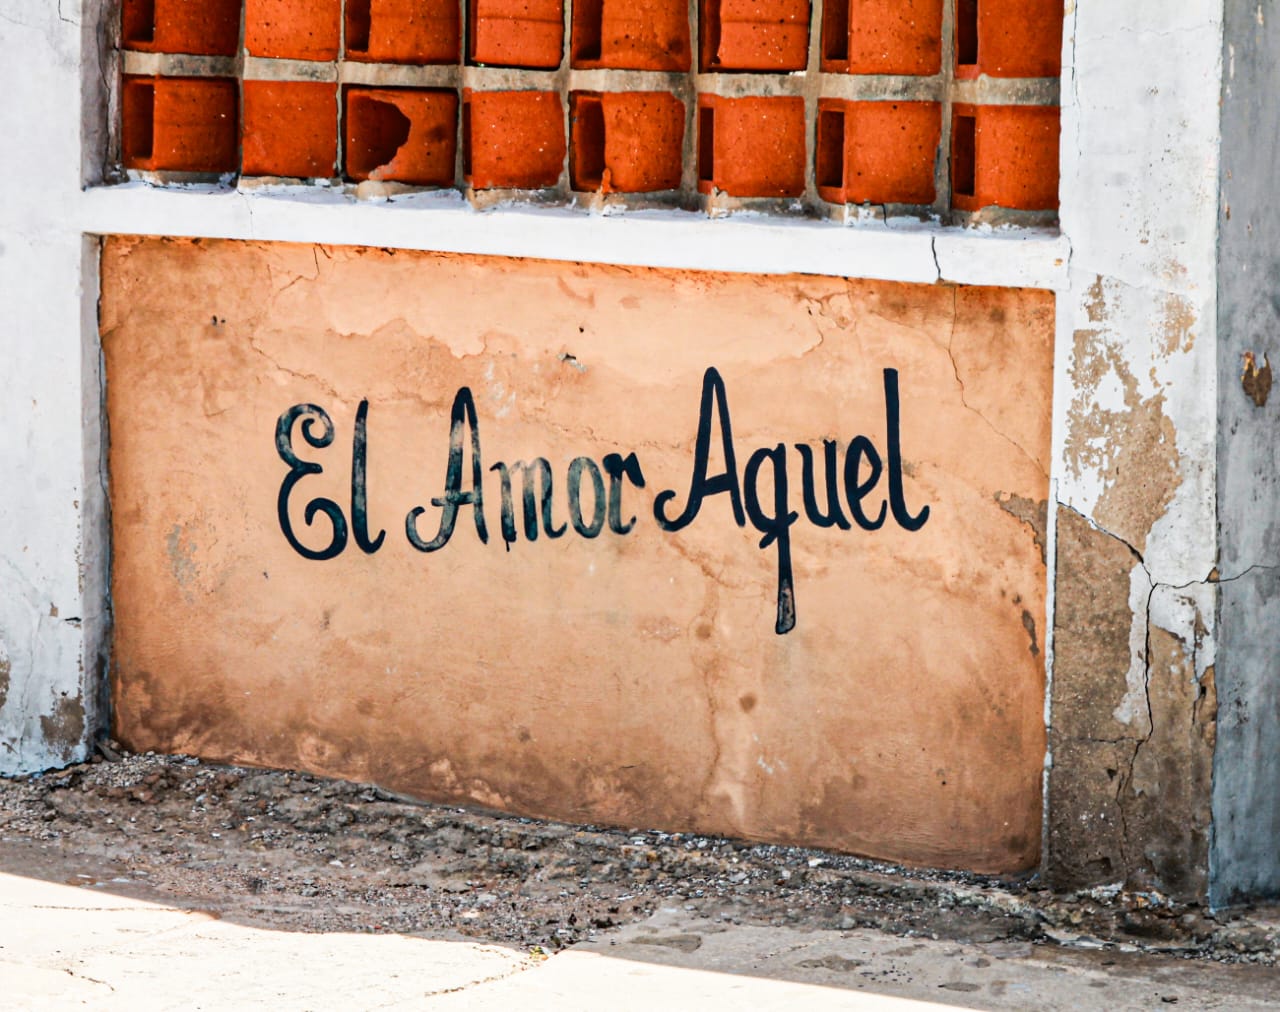 El Amor Aquel